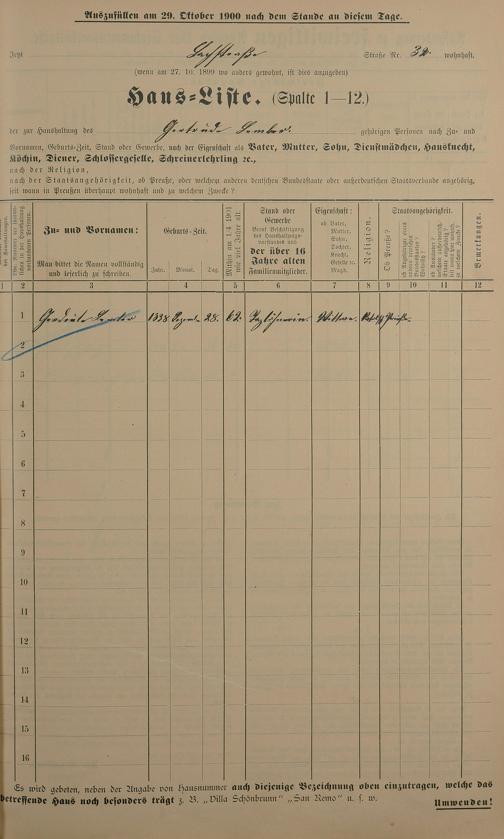 Auszufüllen am 29. Oktober 1900 nach dem Stande an diesem Tage.
Jetzt Straße Nr. 32. wohnhaft.
(wenn am 27. 10. 1899 wo anders gewohnt, ist dies anzugeben)
Haus=Liste. (Spalte 1—12.)
der zur Haushaltung des gehörigen Personen nach Zu- und
Vornamen, Geburts-Zeit, Stand oder Gewerbe, nach der Eigenschaft als Vater, Mutter, Sohn, Dienstmädchen, Hausknecht,
Köchin, Diener, Schlossergeselle, Schreinerlehrling ec.,
nach der Religion,
nach der Staatsangehörigkeit, ob Preuße, oder welchem anderen deutschen Bundesstaate oder außerdeutschen Staatsverbande angehörig,
seit wann in Preußen überhaupt wohnhaft und zu welchem Zwecke?
Zu- und Vornamen:
Man bittet die Namen vollständig
und leserlich zu schreiben.
Geburts-Zeit.
Jahr. Monat. Tag.
Mithin am 1/4 1901
wie viel Jahre alt:
Stand oder
Gewerbe
der über 16
Jahre alten
Familienmitglieder.
Eigenschaft:
ob Vater,
Mutter,
Sohn,
Tochter,
Knecht,
Geselle ec.
Magd.
Religion.
Staatsangehörigkeit.
Ob Preuße?
Bemerkungen.
1 2 3 4 5 6 7 8 9 10 11 12
1 1838 28. 62. Tagelöhnerin Wittwe. Preuße.
2
3
4
5
6
7
8
9
10
11
12
13
14
15
16
Es wird gebeten, neben der Angabe von Hausnummer auch diejenige Bezeichnung oben einzutragen, welche das
betreffende Haus noch besonders trägt z. B. „Villa Schönbrunn" „San Remo" u. s. w.
Umwenden!